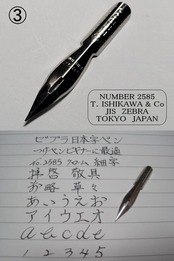 ③
NUMBER 2585
T. ISHIKAWA & Co
JIS ZEBRA
TOKYO JAPAN
ゼブラ日本字ペン
つけペンビギナーに最適
No 2585 クローム 細字
拝啓 敬具
前略 草々
あいうえお
アイウエオ
a b c d e
1 2 3 4 5